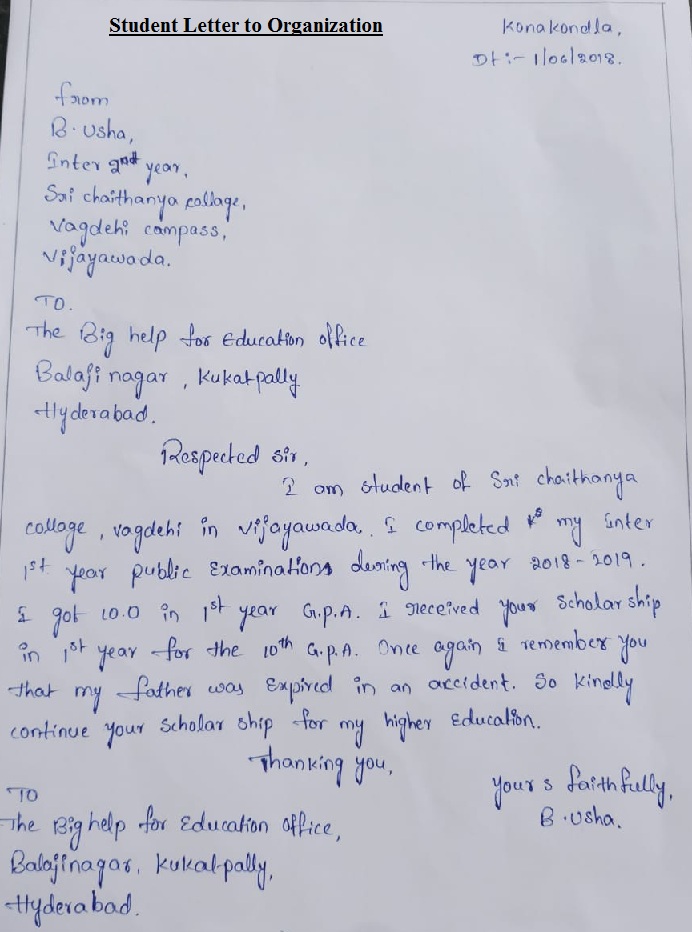 Student Letter to Organization
Konakondla,
Dt:- 1/06/2018.
from
B. Usha,
Inter 2nd year,
Sri chaithanya collage,
Vagdehi campass,
Vijayawada.
TO.
The Big help for Education office
Balaji nagar, Kukatpally
Hyderabad.
Respected sir,
I am student of Sri chaithanya
collage, vagdehi in vijayawada. I completed my inter
1st year public Examinations during the year 2018-2019.
I got 10.0 in 1st year G.P.A. I received your Scholar ship
in 1st year for the 10th G.P.A. Once again I remember you
that my father was Expired in an accident. So kindly
continue your scholar ship for my higher Education.
Thanking you,
your s faithfully,
B. Usha.
TO
The Big help for Education office,
Balajinagar, Kukatpally,
Hyderabad.